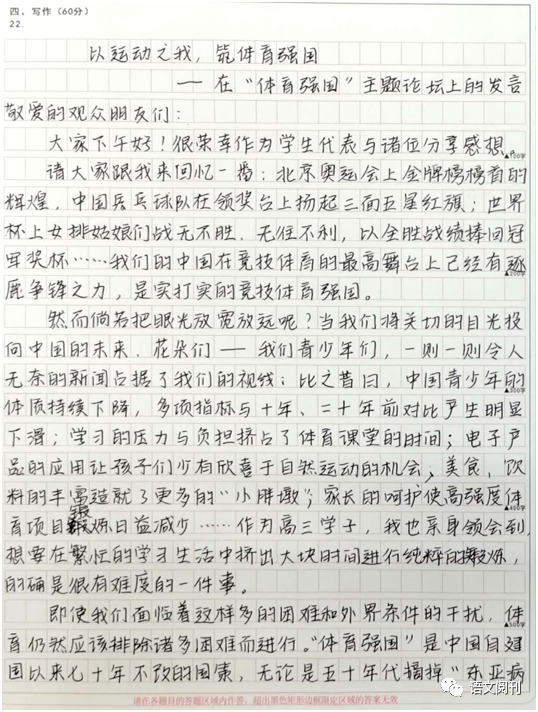 四、写作（60分）
22.
以运动之我，筑体育强国
——在“体育强国”主题论坛上的发言
敬爱的观众朋友们：
大家下午好！很荣幸作为学生代表与诸位分享感想。
▲100字
请大家跟我来回忆一番：北京奥运会上金牌榜榜首的
辉煌，中国乒乓球队在领奖台上扬起三面五星红旗；世界
杯上女排姑娘们战无不胜、无往不利，以全胜战绩捧回冠
军奖杯……我们的中国在竞技体育的最高舞台上已经有逐
▲200字
鹿争锋之力，是实打实的竞技体育强国。
然而倘若把眼光放宽放远呢？当我们将关切的目光投
向中国的未来、花朵们——我们青少年们，一则一则令人
无奈的新闻占据了我们的视线：比之昔日，中国青少年的
▲300字
体质持续下降，多项指标与十年、二十年前对比产生明显
下滑；学习的压力与负担挤占了体育课堂的时间；电子产
品的应用让孩子们少有欣喜于自然运动的机会；美食、饮
料的丰富造就了更多的“小胖墩”；家长的呵护使高强度体
▲400字
育项目锻炼日益减少……作为高三学子，我也亲身领会到，
想要在繁忙的学习生活中挤出大块时间进行纯粹的锻炼，
的确是很有难度的一件事。
即使我们面临着这样多的困难和外界条件的干扰，体
▲500字
育仍然应该排除诸多困难而进行。“体育强国”是中国自建
国以来七十年不改的国策，无论是五十年代摘掉“东亚病
请在各题目的答题区域内作答，超出黑色矩形边框限定区域的答案无效
语文阅刊